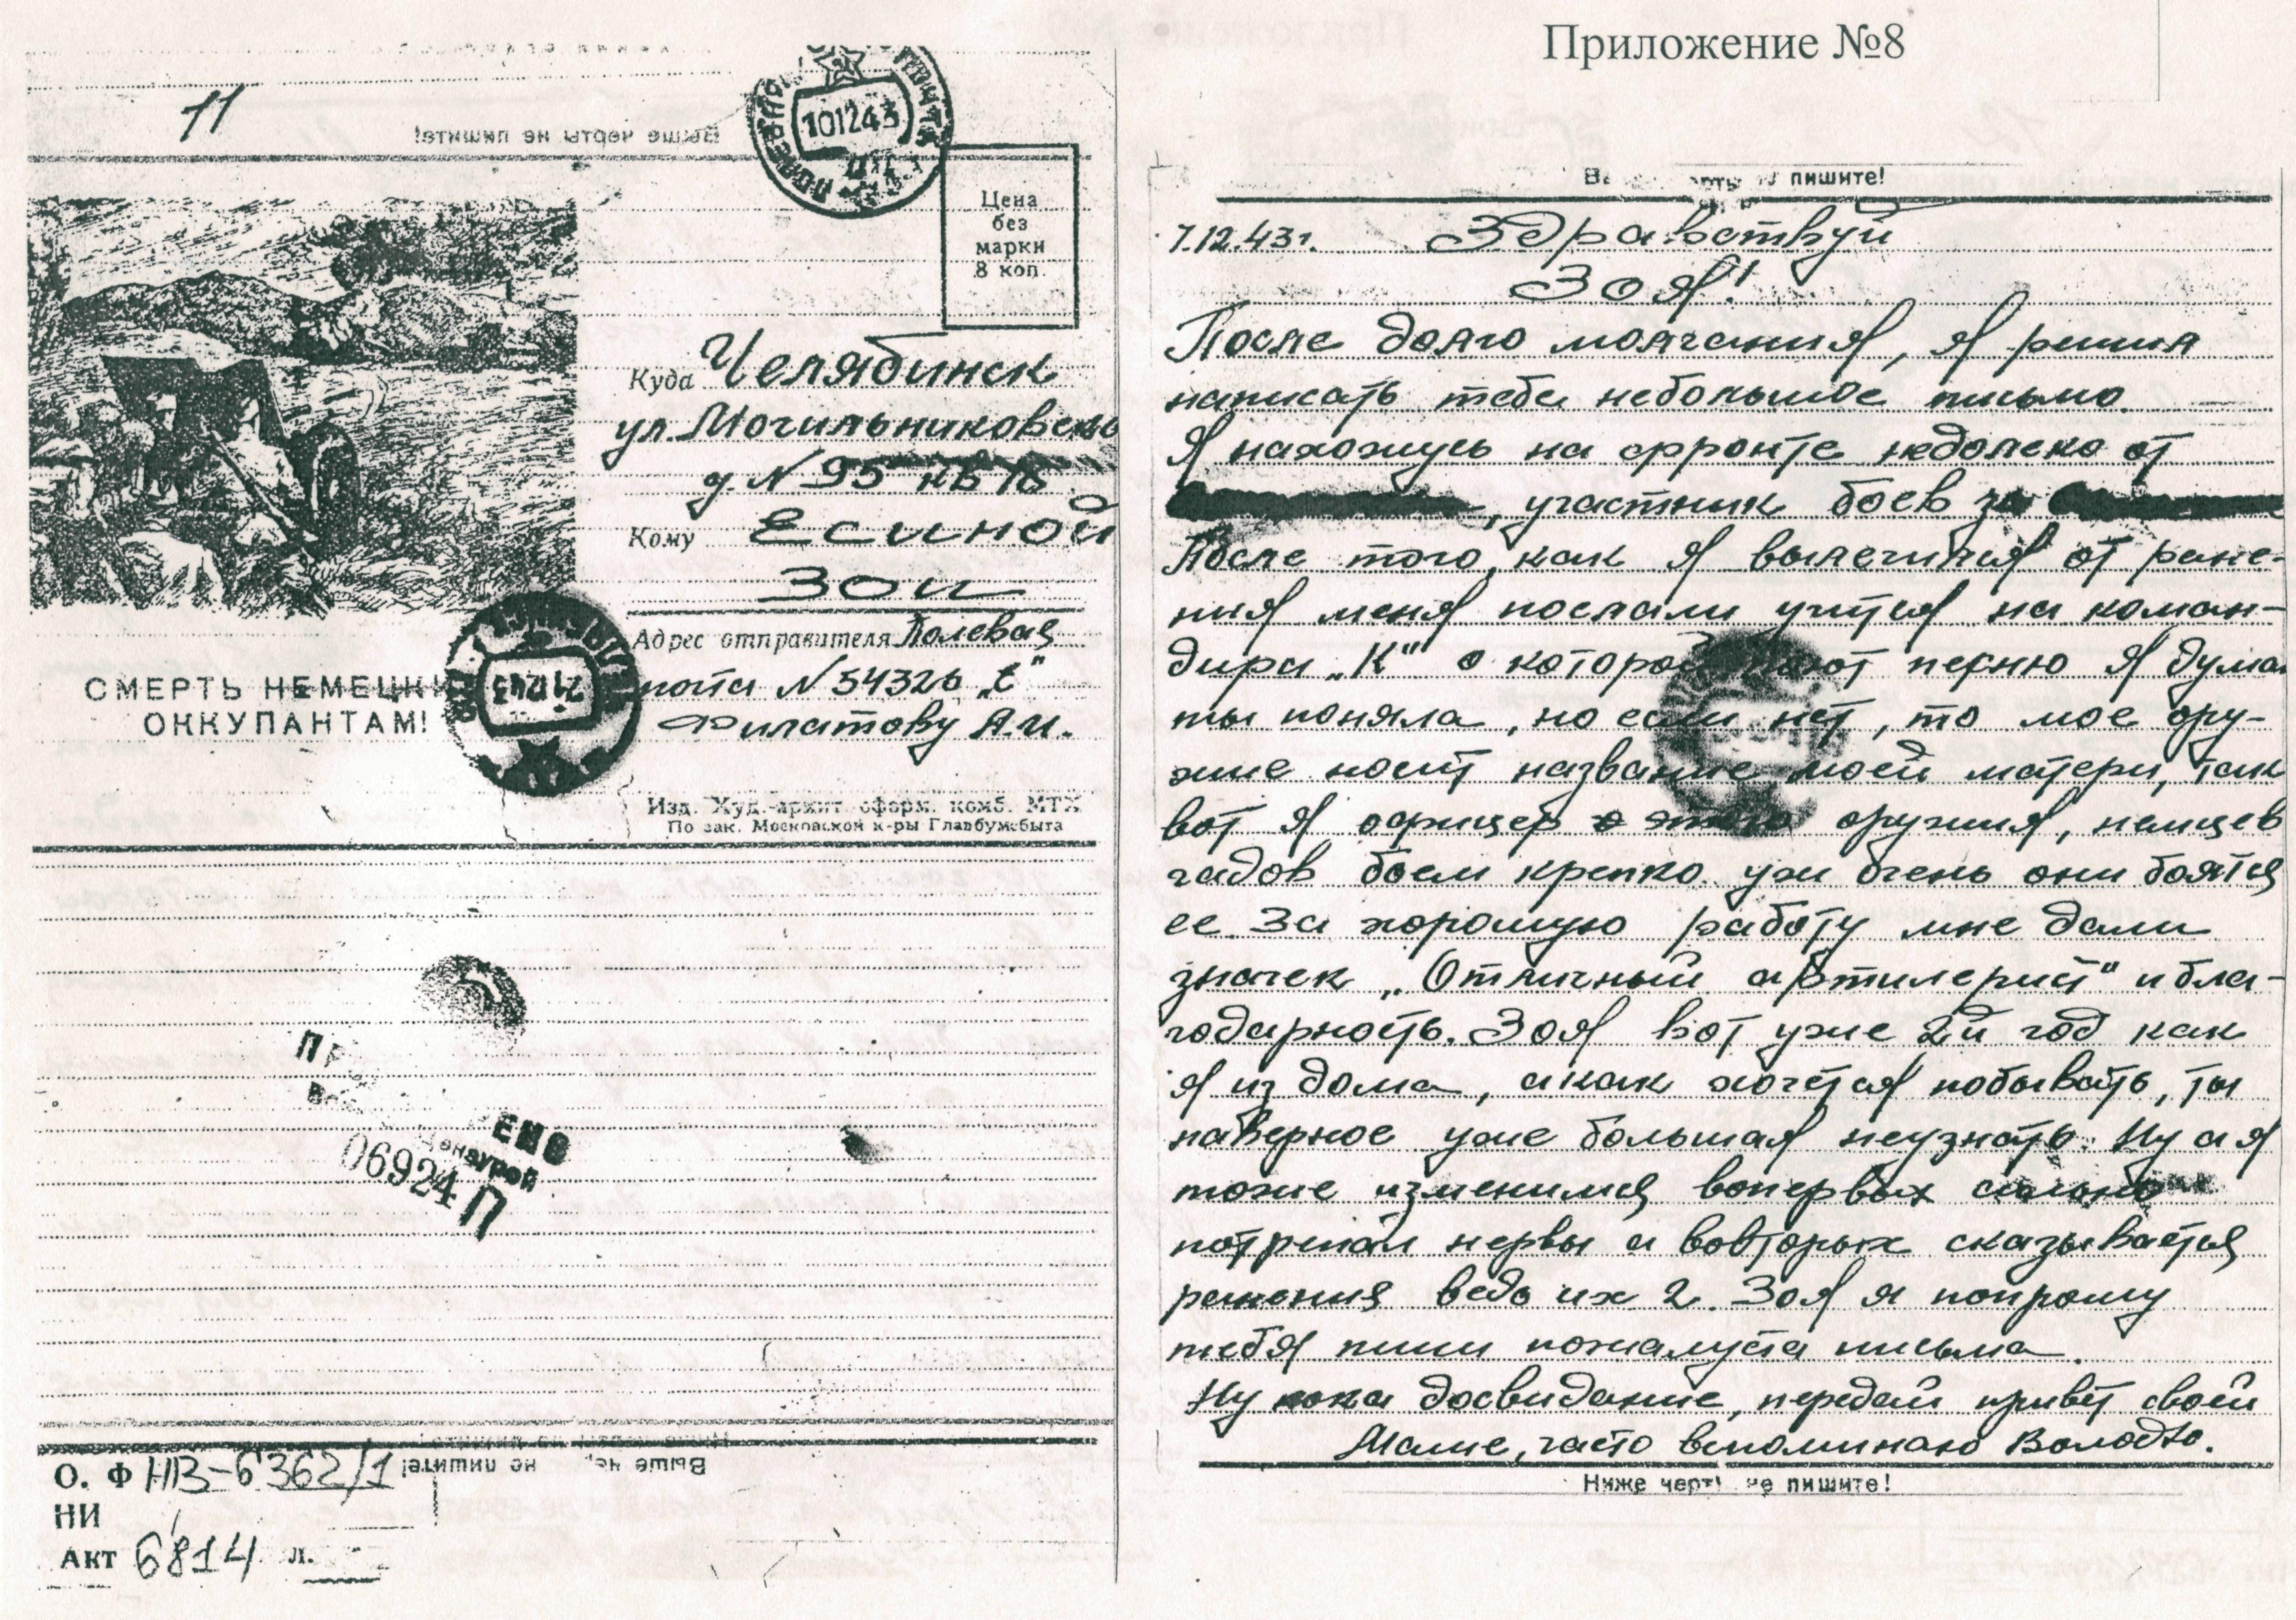 Приложение №8
11
Выше черты не пишите!
101243
Цена
без
марки
8 коп.
Куда Челябинск
ул. Могильниковская
д. N 95 кв 18
Кому Есиной
Зои
Адрес отправителя Полевая
почта N 54326 „Е"
Филатову А.И.
СМЕРТЬ НЕМЕЦКИМ
ОККУПАНТАМ!
211243
Изд. Худ.-архит оформ. комб. МТХ
По зак. Московской к-ры Главбумсбыта
06924
П
Выше чер не пишите!
О. Ф НВ-6362/1
НИ
АКТ 6814 л.
черты не пишите!
7.12.43г. Здравствуй
Зоя!
После долго молчания, я решил
написать тебе небольшое письмо.
Я нахожусь на фронте недолеко от
, участник боев за
После того, как я вылечился от ране-
ния меня послали учится на коман-
дира „К" о которой поют песню я дума
ты поняла, но если нет, то мое ору-
жие носит название моей матери, так
вот я офицер этого оружия, немцев
гадов бьем крепко уж очень они боятся
ее. За хорошую работу мне дали
значек „Отличный артилерист" и бла-
годарность. Зоя вот уже 2й год как
я из дома, а как хочется побывать, ты
наверное уже большая неузнать. Ну а я
тоже изменился вопервых сильно
потрепал нервы а вовторых сказывается
ранения ведь их 2. Зоя я попрошу
тебя пиши пожалуста письма.
Ну пока досвидание, передай привет своей
Маме, часто вспоминаю Володю.
Ниже черты не пишите!